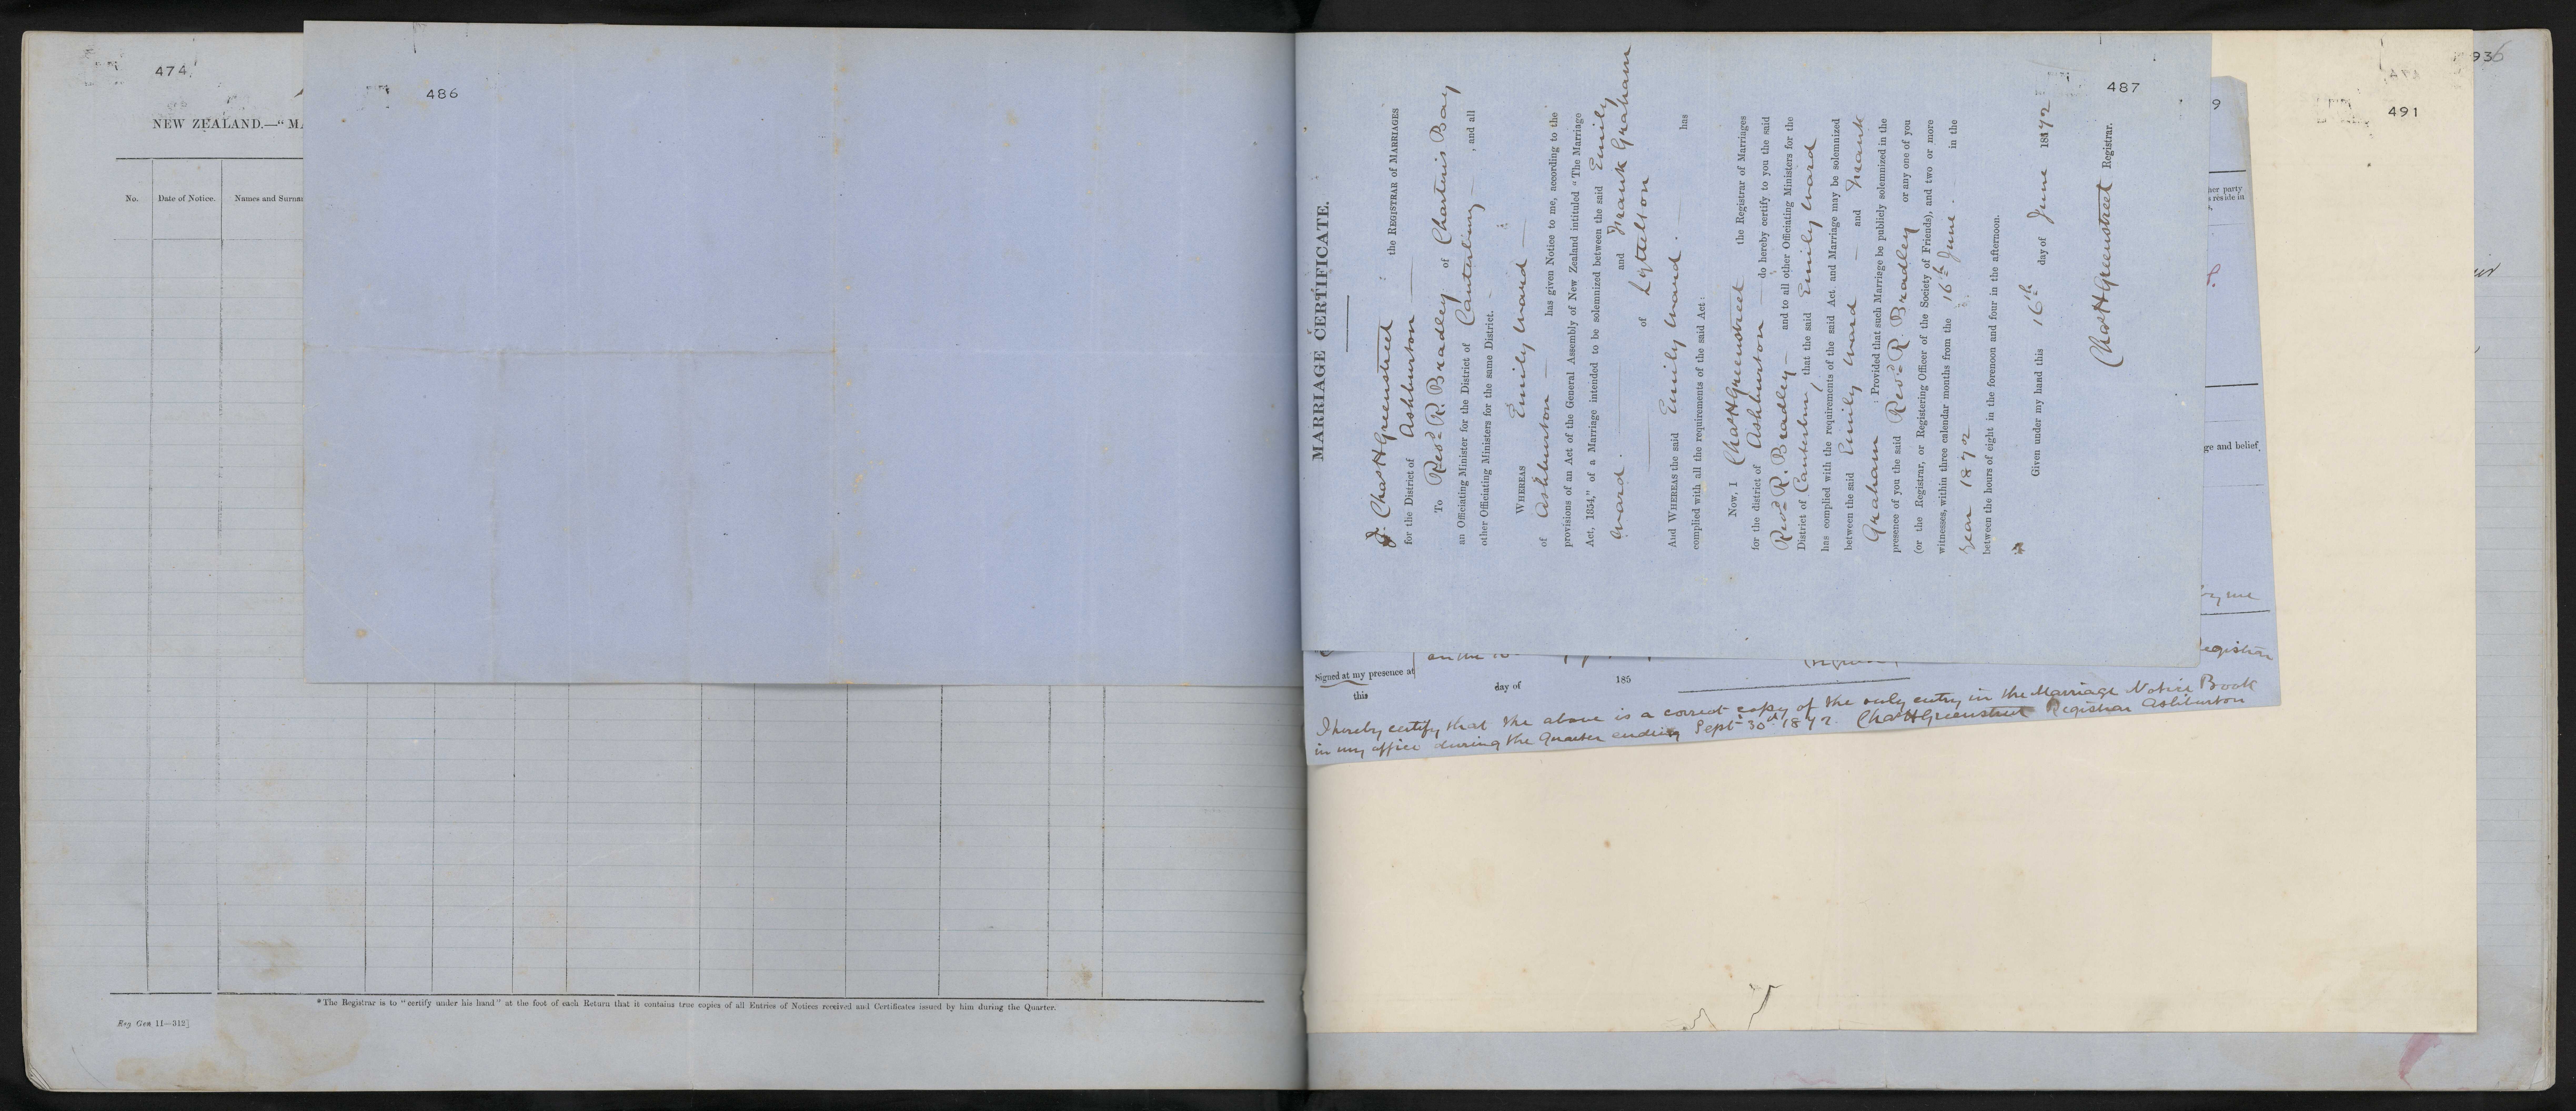 474
NEW ZEALAND.—"MA
No.
Date of Notice.
Names and Surna
*The Registrar is to "certify under his hand" at the foot of each Return that it contains true copies of all Entries of Notices received and Certificates issued by him during the Quarter.
Reg Gen 11—312]
486
487
MARRIAGE CERTIFICATE.
I, Chas H Greenstreet the REGISTRAR of MARRIAGES
for the District of Ashburton
To Revd R. Bradley of Charteris Bay
an Officiating Minister for the District of Canterbury , and all
other Officiating Ministers for the same District.
WHEREAS Emily Ward
of Ashburton has given Notice to me, according to the
provisions of an Act of the General Assembly of New Zealand intituled "The Marriage
Act, 1854," of a Marriage intended to be solemnized between the said Emily
Ward. and Frank Graham
of Lyttelton
And WHEREAS the said Emily Ward. has
complied with all the requirements of the said Act:
Now, I Chas H Greenstreet the Registrar of Marriages
for the district of Ashburton do hereby certify to you the said
Revd R. Bradley and to all other Officiating Ministers for the
District of Canterbury, that the said Emily Ward
has complied with the requirements of the said Act, and Marriage may be solemnized
between the said Emily Ward and Frank
Graham : Provided that such Marriage be publicly solemnized in the
presence of you the said Revd R. Bradley or any one of you
(or the Registrar, or Registering Officer of the Society of Friends), and two or more
witnesses, within three calendar months from the 16th June. in the
year 1872
between the hours of eight in the forenoon and four in the afternoon.
Given under my hand this 16th day of June 1872
Chas H Greenstreet Registrar.
9
her party
s reside in
ge and belief.
by me
egistrar
Signed at my presence at
this day of 185
I hereby certify that the above is a correct copy of the only entry in the Marriage Notice Book
in my office during the Quarter ending Sept 30th 1872. Chas H Greenstreet Registrar Ashburton
491
936